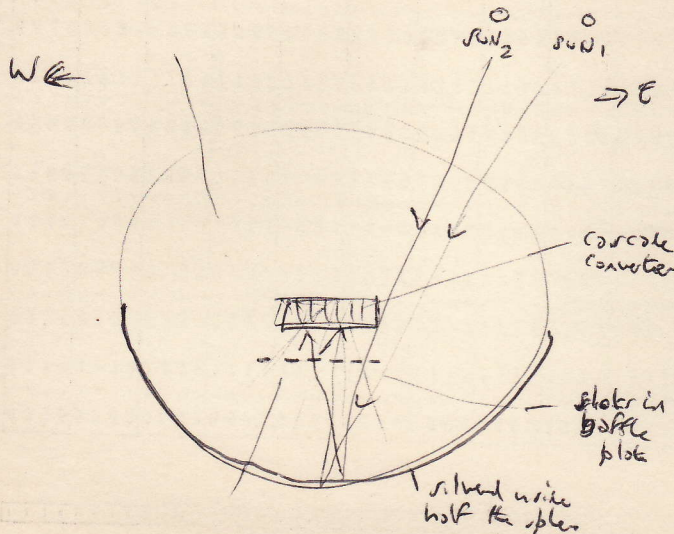 SUN₂
SUN₁
W
E
cascade
converter
slots in
baffle
plate
silvered inside
half the sphere